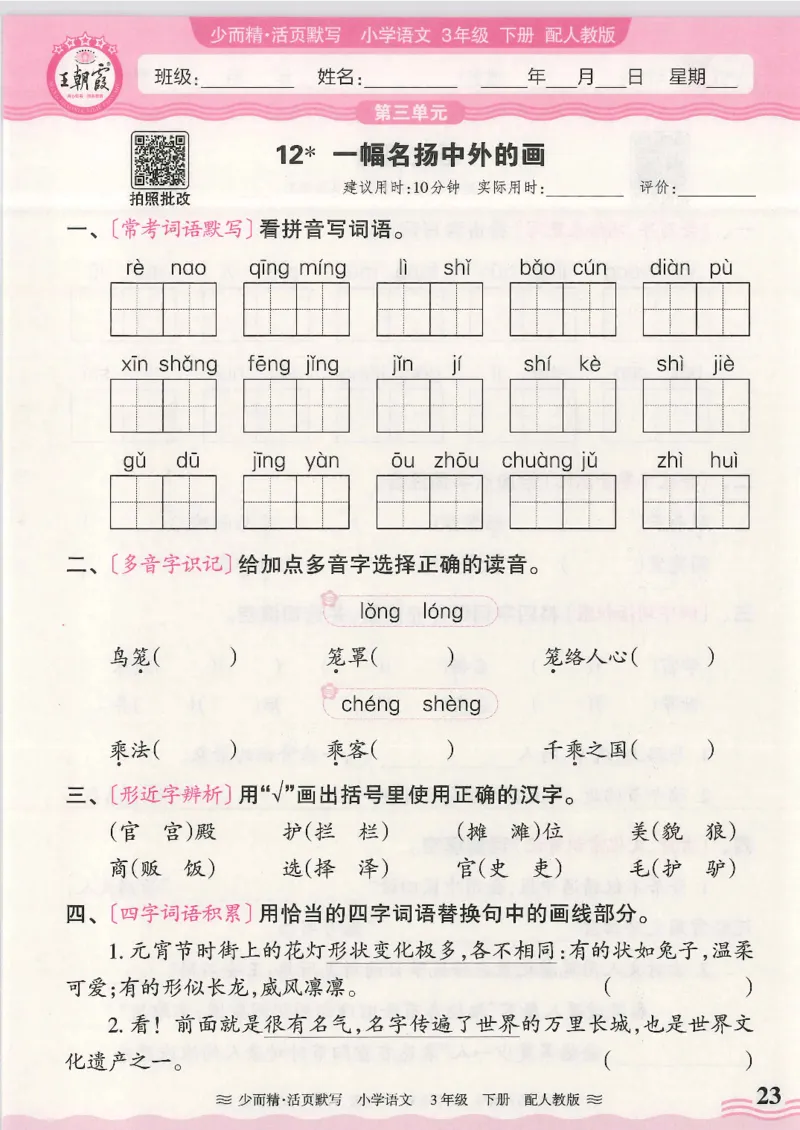 少而精·活页默写 小学语文 3年级 下册 配人教版
王朝霞
班级: 姓名: 年 月 日 星期
第三单元
12* 一幅名扬中外的画
拍照批改
建议用时:10分钟 实际用时: 评价:
一、〔常考词语默写〕看拼音写词语。
rè nao qīng míng lì shǐ bǎo cún diàn pù
xīn shǎng fēng jǐng jǐn jí shí kè shì jiè
gǔ dū jīng yàn ōu zhōu chuàng jǔ zhì huì
二、〔多音字识记〕给加点多音字选择正确的读音。
lǒng lóng
鸟笼( ) 笼罩( ) 笼络人心( )
chéng shèng
乘法( ) 乘客( ) 千乘之国( )
三、〔形近字辨析〕用“√”画出括号里使用正确的汉字。
(官 宫)殿 护(拦 栏) (摊 滩)位 美(貌 狼)
商(贩 饭) 选(择 泽) 官(史 吏) 毛(护 驴)
四、〔四字词语积累〕用恰当的四字词语替换句中的画线部分。
1. 元宵节时街上的花灯形状变化极多,各不相同:有的状如兔子,温柔
可爱;有的形似长龙,威风凛凛。 ( )
2. 看! 前面就是很有名气,名字传遍了世界的万里长城,也是世界文
化遗产之一。 ( )
少而精·活页默写 小学语文 3年级 下册 配人教版
23